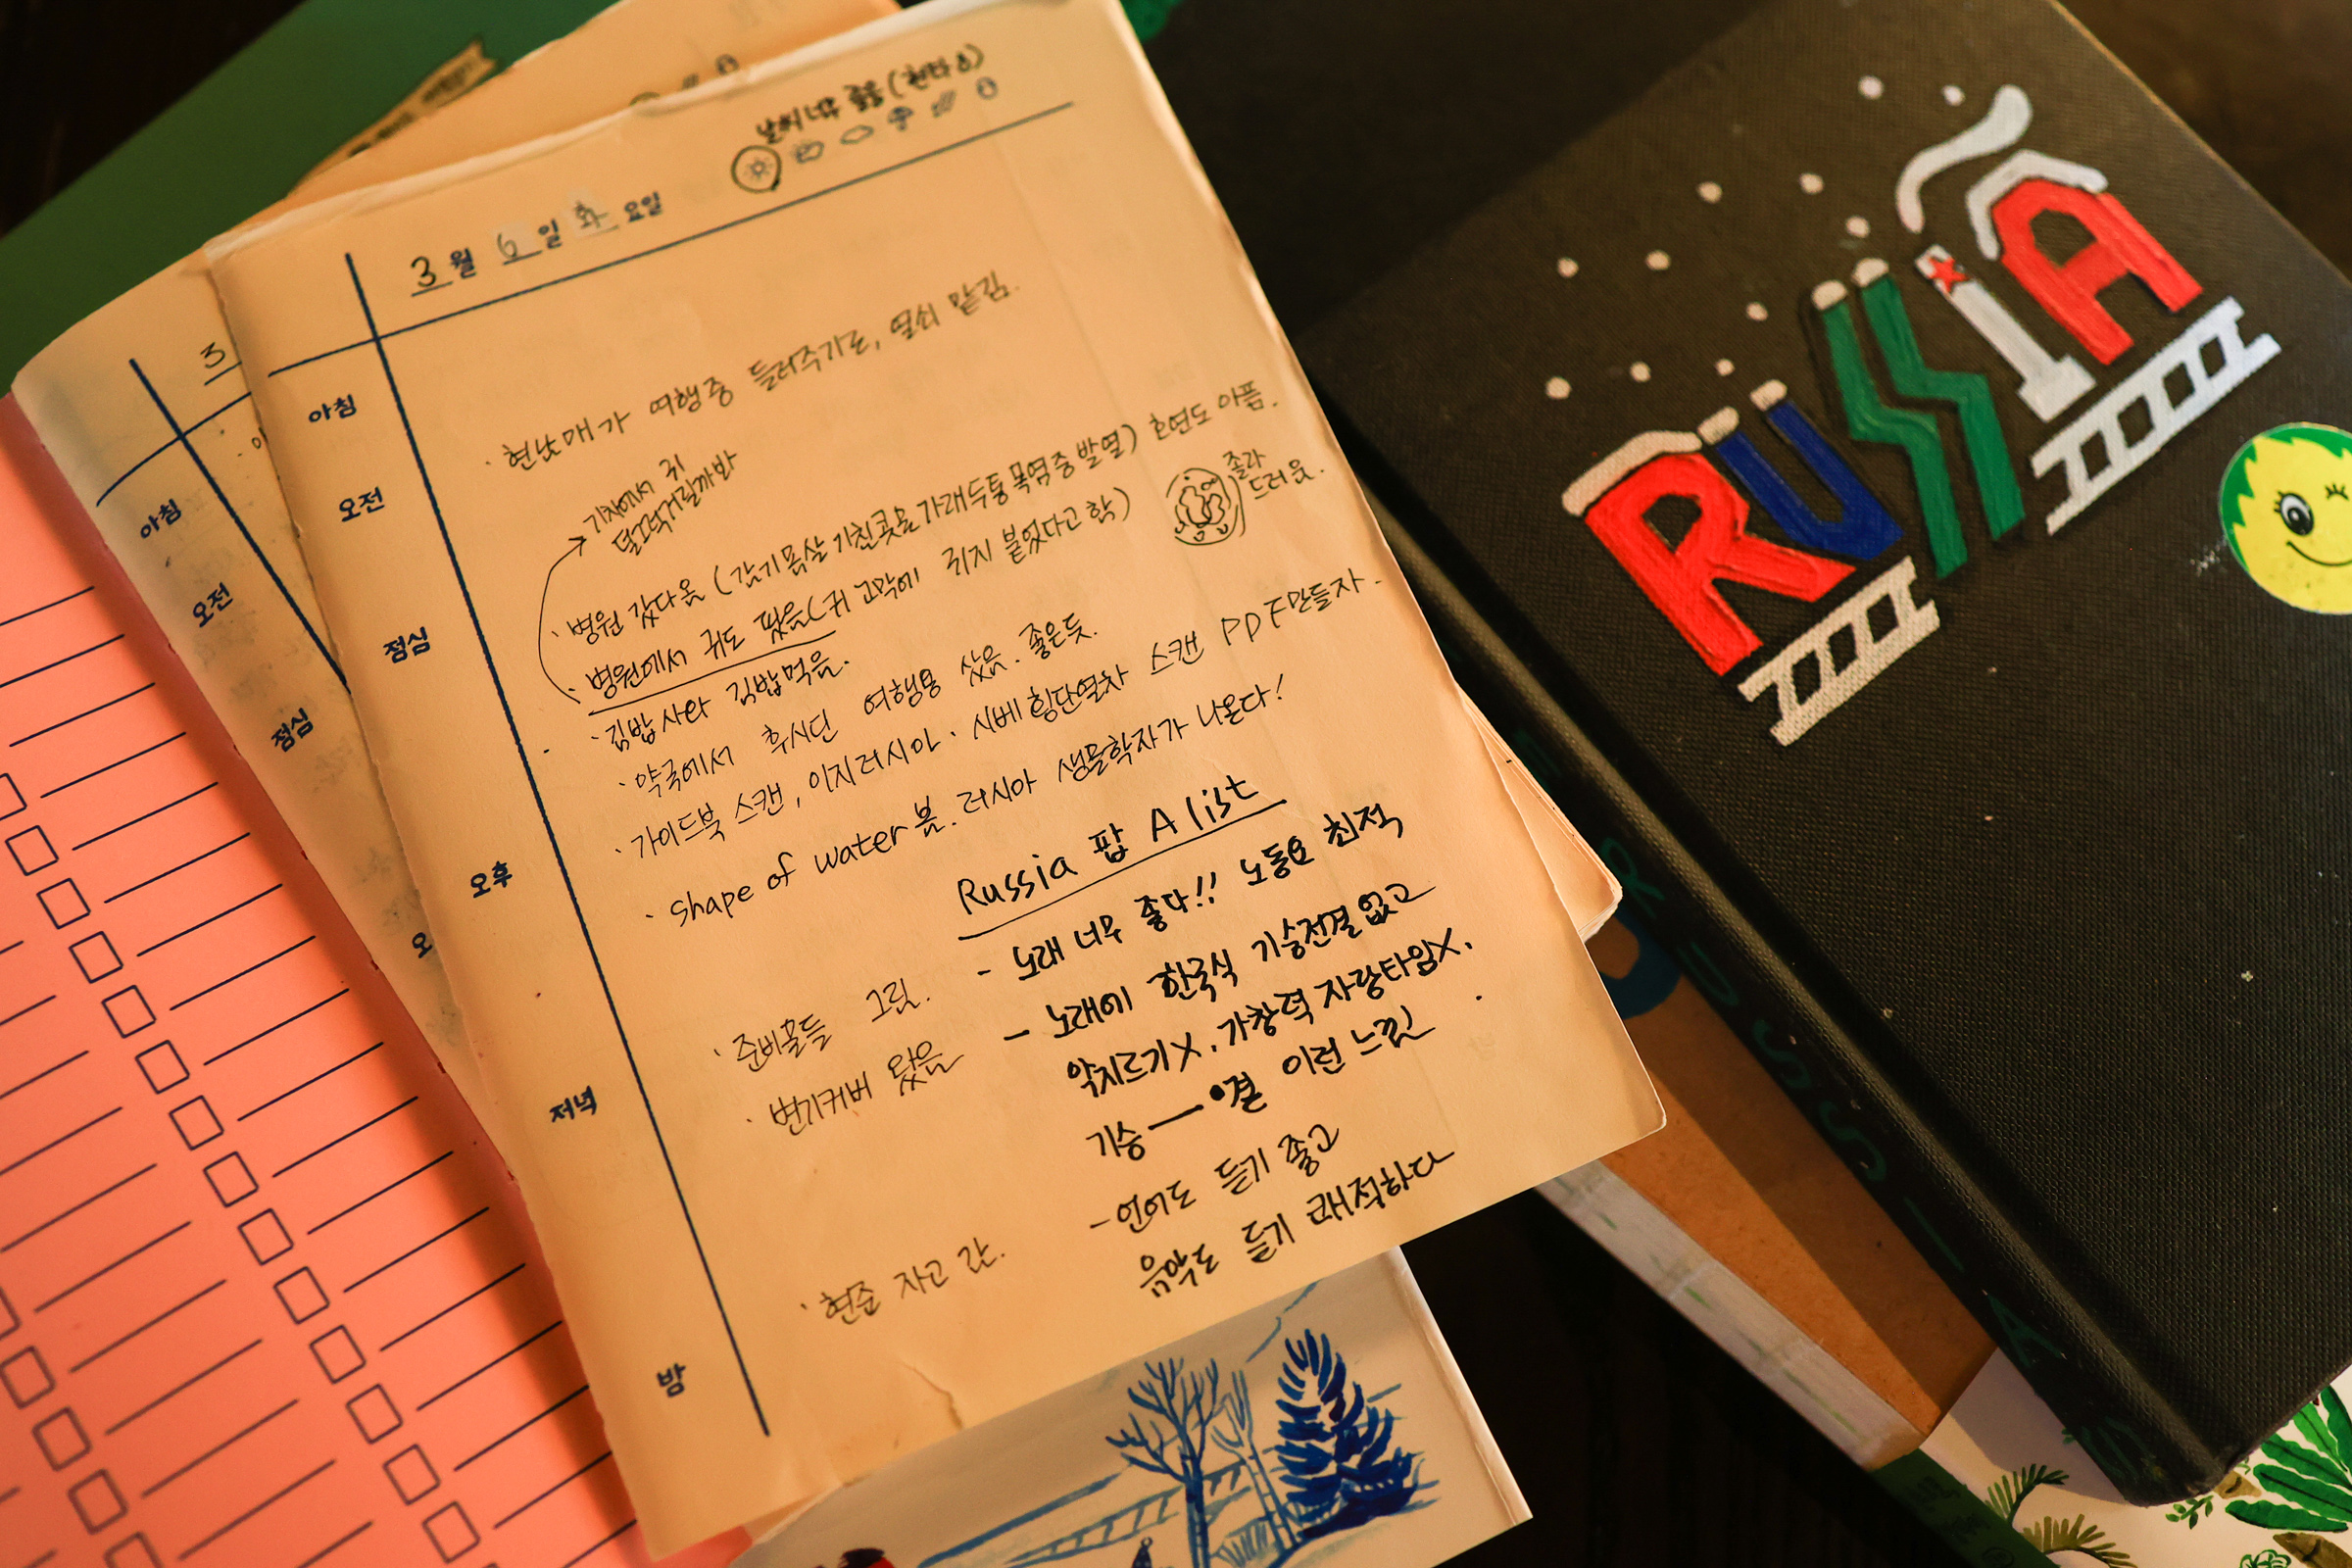 날씨 너무 좋음 (현타 ㅎ)
3월 6일 화요일
아침
오전
점심
오후
저녁
밤
· 현남매가 여행중 들러주기로, 열쇠 맡김.
기차에서 귀
덜그럭거릴까봐
· 병원 갔다옴 (감기몸살 기침콧물가래두통 폭염중발열) 호연도 아픔.
· 병원에서 귀도 팠음(귀 고막에 귀지 붙었다고 함)
졸라
드러움.
· 김밥사와 김밥먹음.
· 약국에서 후시딘 여행용 샀음. 좋은듯.
· 가이드북 스캔, 이지러시아. 시베횡단열차 스캔 PDF만들자.
· Shape of water봄. 러시아 생물학자가 나온다!
Russia 팝 A list
- 노래 너무 좋다!! 노동요 최적
- 노래에 한국식 기승전결 없고
악지르기X, 가창력 자랑타임X.
기승—•결 이런 느낌
- 언어도 듣기 좋고
음악도 듣기 쾌적하다
· 준비물들 그림.
· 변기커버 왔음
· 현준 자고 감.
3
아침
오전
점심
오
RUSSIA
RUSSIA